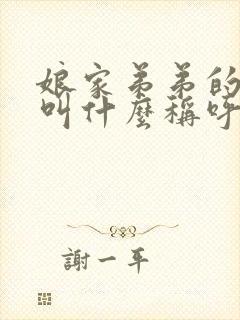 娘家弟弟的
叫什麼稱呼
謝一平